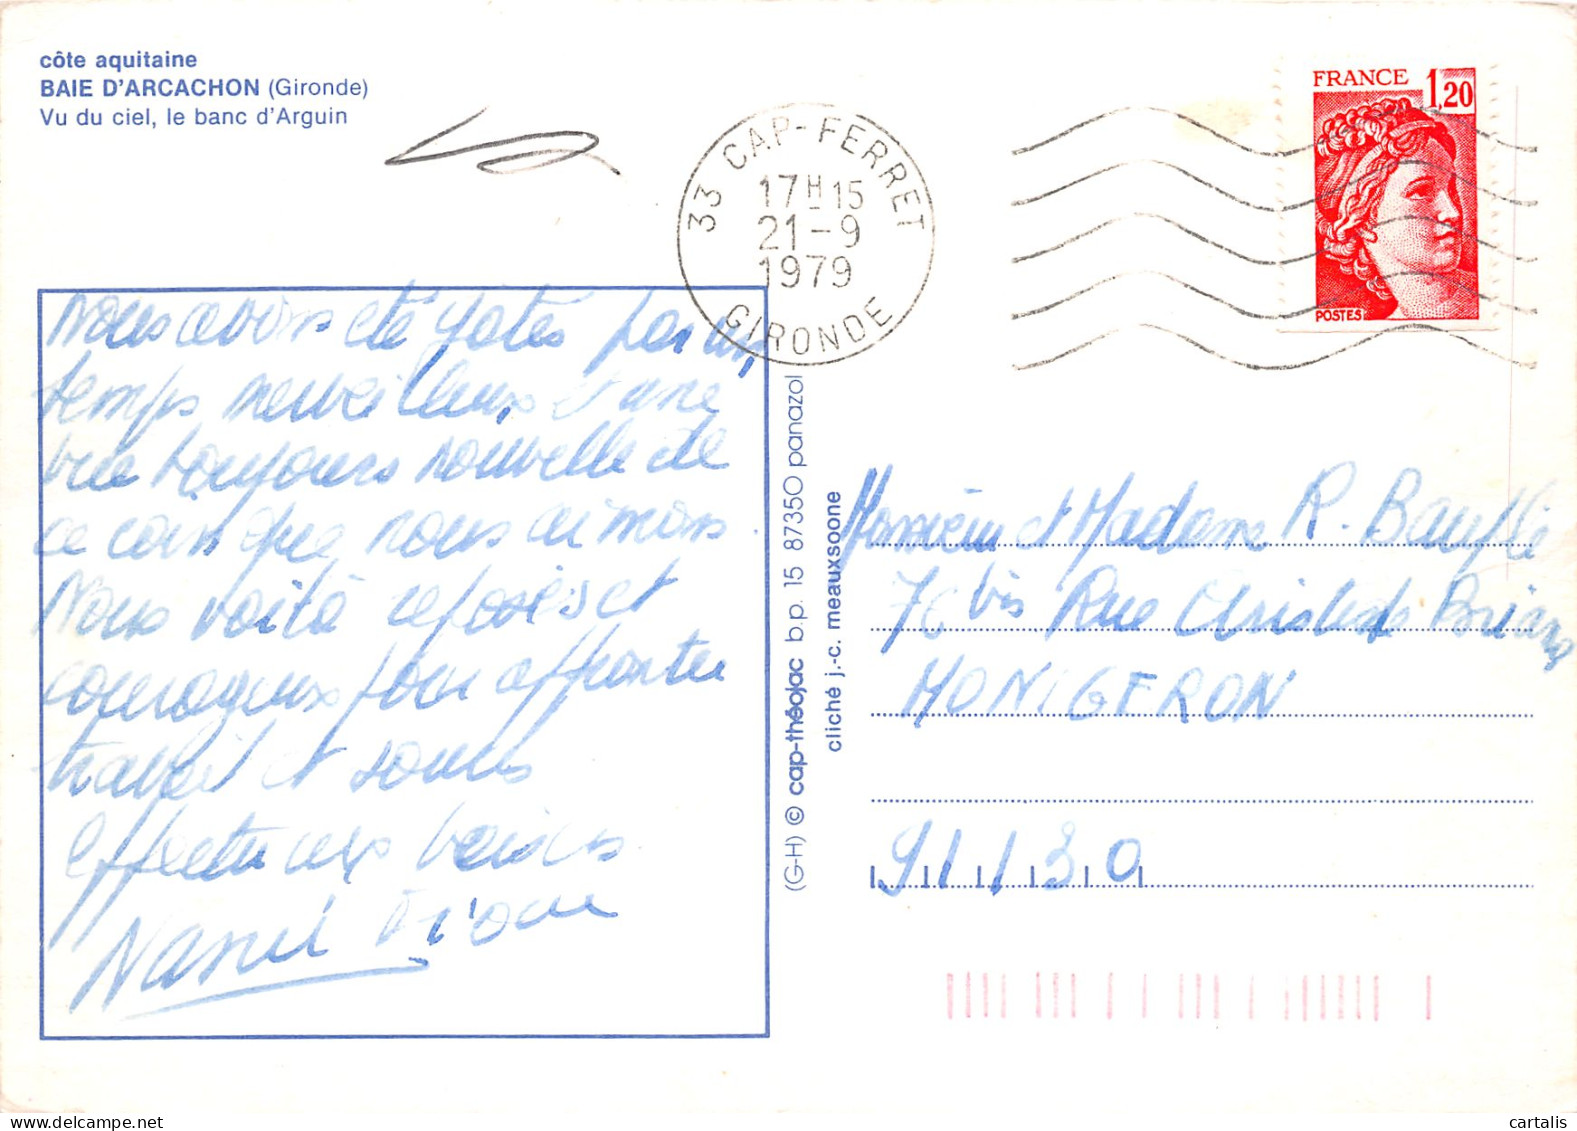 côte aquitaine
BAIE D'ARCACHON (Gironde)
Vu du ciel, le banc d'Arguin
33 CAP-FERRET
17H15
21-9
1979
GIRONDE
FRANCE 1,20
POSTES
Nous avons été gatés par un
temps merveilleux et une
vue toujours nouvelle de
ce coin que nous aimons.
Nous voilà reposés et
courageux pour affronter
travail et soucis
Affectueux baisers
(G-H) © cap-théojac b.p. 15 87350 panazol
cliché j.-c. meauxsoone
Monsieur et Madame R.
76 bis Rue Aristide Briand
MONTGERON
91130
cartalis